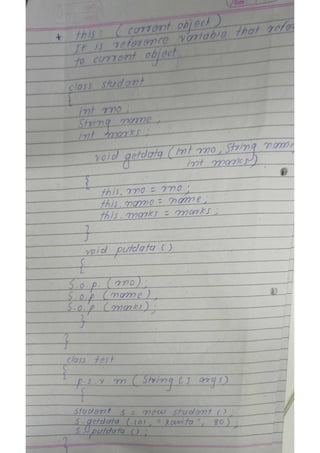 * this : ( current object )
It is reference variable that refe
to current object.
class student
{
int rno ;
String name ;
int marks ;
void getdata ( int rno, String nam
int marks )
{
this. rno = rno ;
this. name = name ;
this. marks = marks ;
}
void putdata ( )
{
S.o.p. ( rno ) ;
S.o.p ( name ) ;
S.o.p ( marks ) ;
}
}
class test
{
p.s.v.m ( String [ ] args )
{
student s = new student ( ) ;
s getdata ( 101, " 80 ) ;
s. putdata ( ) ;
}